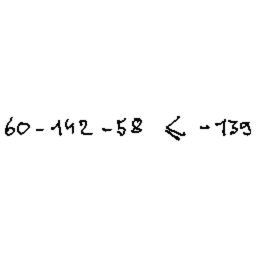 60 - 142 - 58 ≤ -139